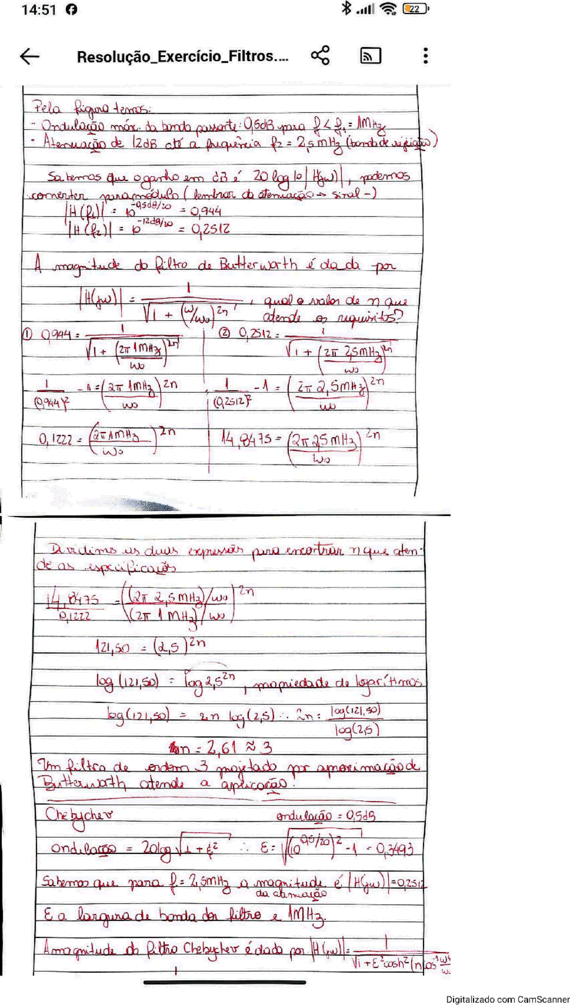 14:51
22
Resolução_Exercício_Filtros....
Pela figura temos:
- Ondulação máx. da banda passante: 0,5dB para f < f₁ = 1MHz
- Atenuação de 12dB até a frequência f₂ = 2,5MHz (banda de rejeição)
Sabemos que o ganho em dB é 20 log10 |H(jw)|, podemos
converter para módulo (lembrar da atenuação → sinal -)
|H(f₁)| = 10^(-0,5dB/20) = 0,944
|H(f₂)| = 10^(-12dB/20) = 0,2512
A magnitude do filtro de Butterworth é dada por
|H(jw)| = 1/√(1 + (w/w₀)^2n), qual o valor de n que
atende os requisitos?
① 0,944 = 1/√(1 + (2π 1MHz/w₀)^2n) ② 0,2512 = 1/√(1 + (2π 2,5MHz/w₀)^2n)
1/(0,944)² - 1 = (2π 1MHz/w₀)^2n 1/(0,2512)² - 1 = (2π 2,5MHz/w₀)^2n
0,1222 = (2π 1MHz/w₀)^2n 14,8475 = (2π 2,5MHz/w₀)^2n
Dividimos as duas expressões para encontrar n que aten-
de as especificações
14,8475/0,1222 = ((2π 2,5MHz)/w₀/(2π 1MHz)/w₀)^2n
121,50 = (2,5)^2n
log(121,50) = log 2,5^2n, propriedade de logarítimos
log(121,50) = 2n log(2,5) ∴ 2n = log(121,50)/log(2,5)
n = 2,61 ≈ 3
Um filtro de ordem 3 projetado por aproximação de
Butterworth atende a aplicação.
Chebychev ondulação = 0,5dB
ondulação = 20log √(1 + ε²) ∴ ε = √((10^(0,5/20))² - 1) = 0,3493
Sabemos que para f = 2,5MHz a magnitude é |H(jw)| = 0,2512
da atenuação
E a largura de banda do filtro é 1MHz.
A magnitude do filtro Chebychev é dado por |H(jw)| = 1/√(1 + ε² cosh² (n
1
Digitalizado com CamScanner